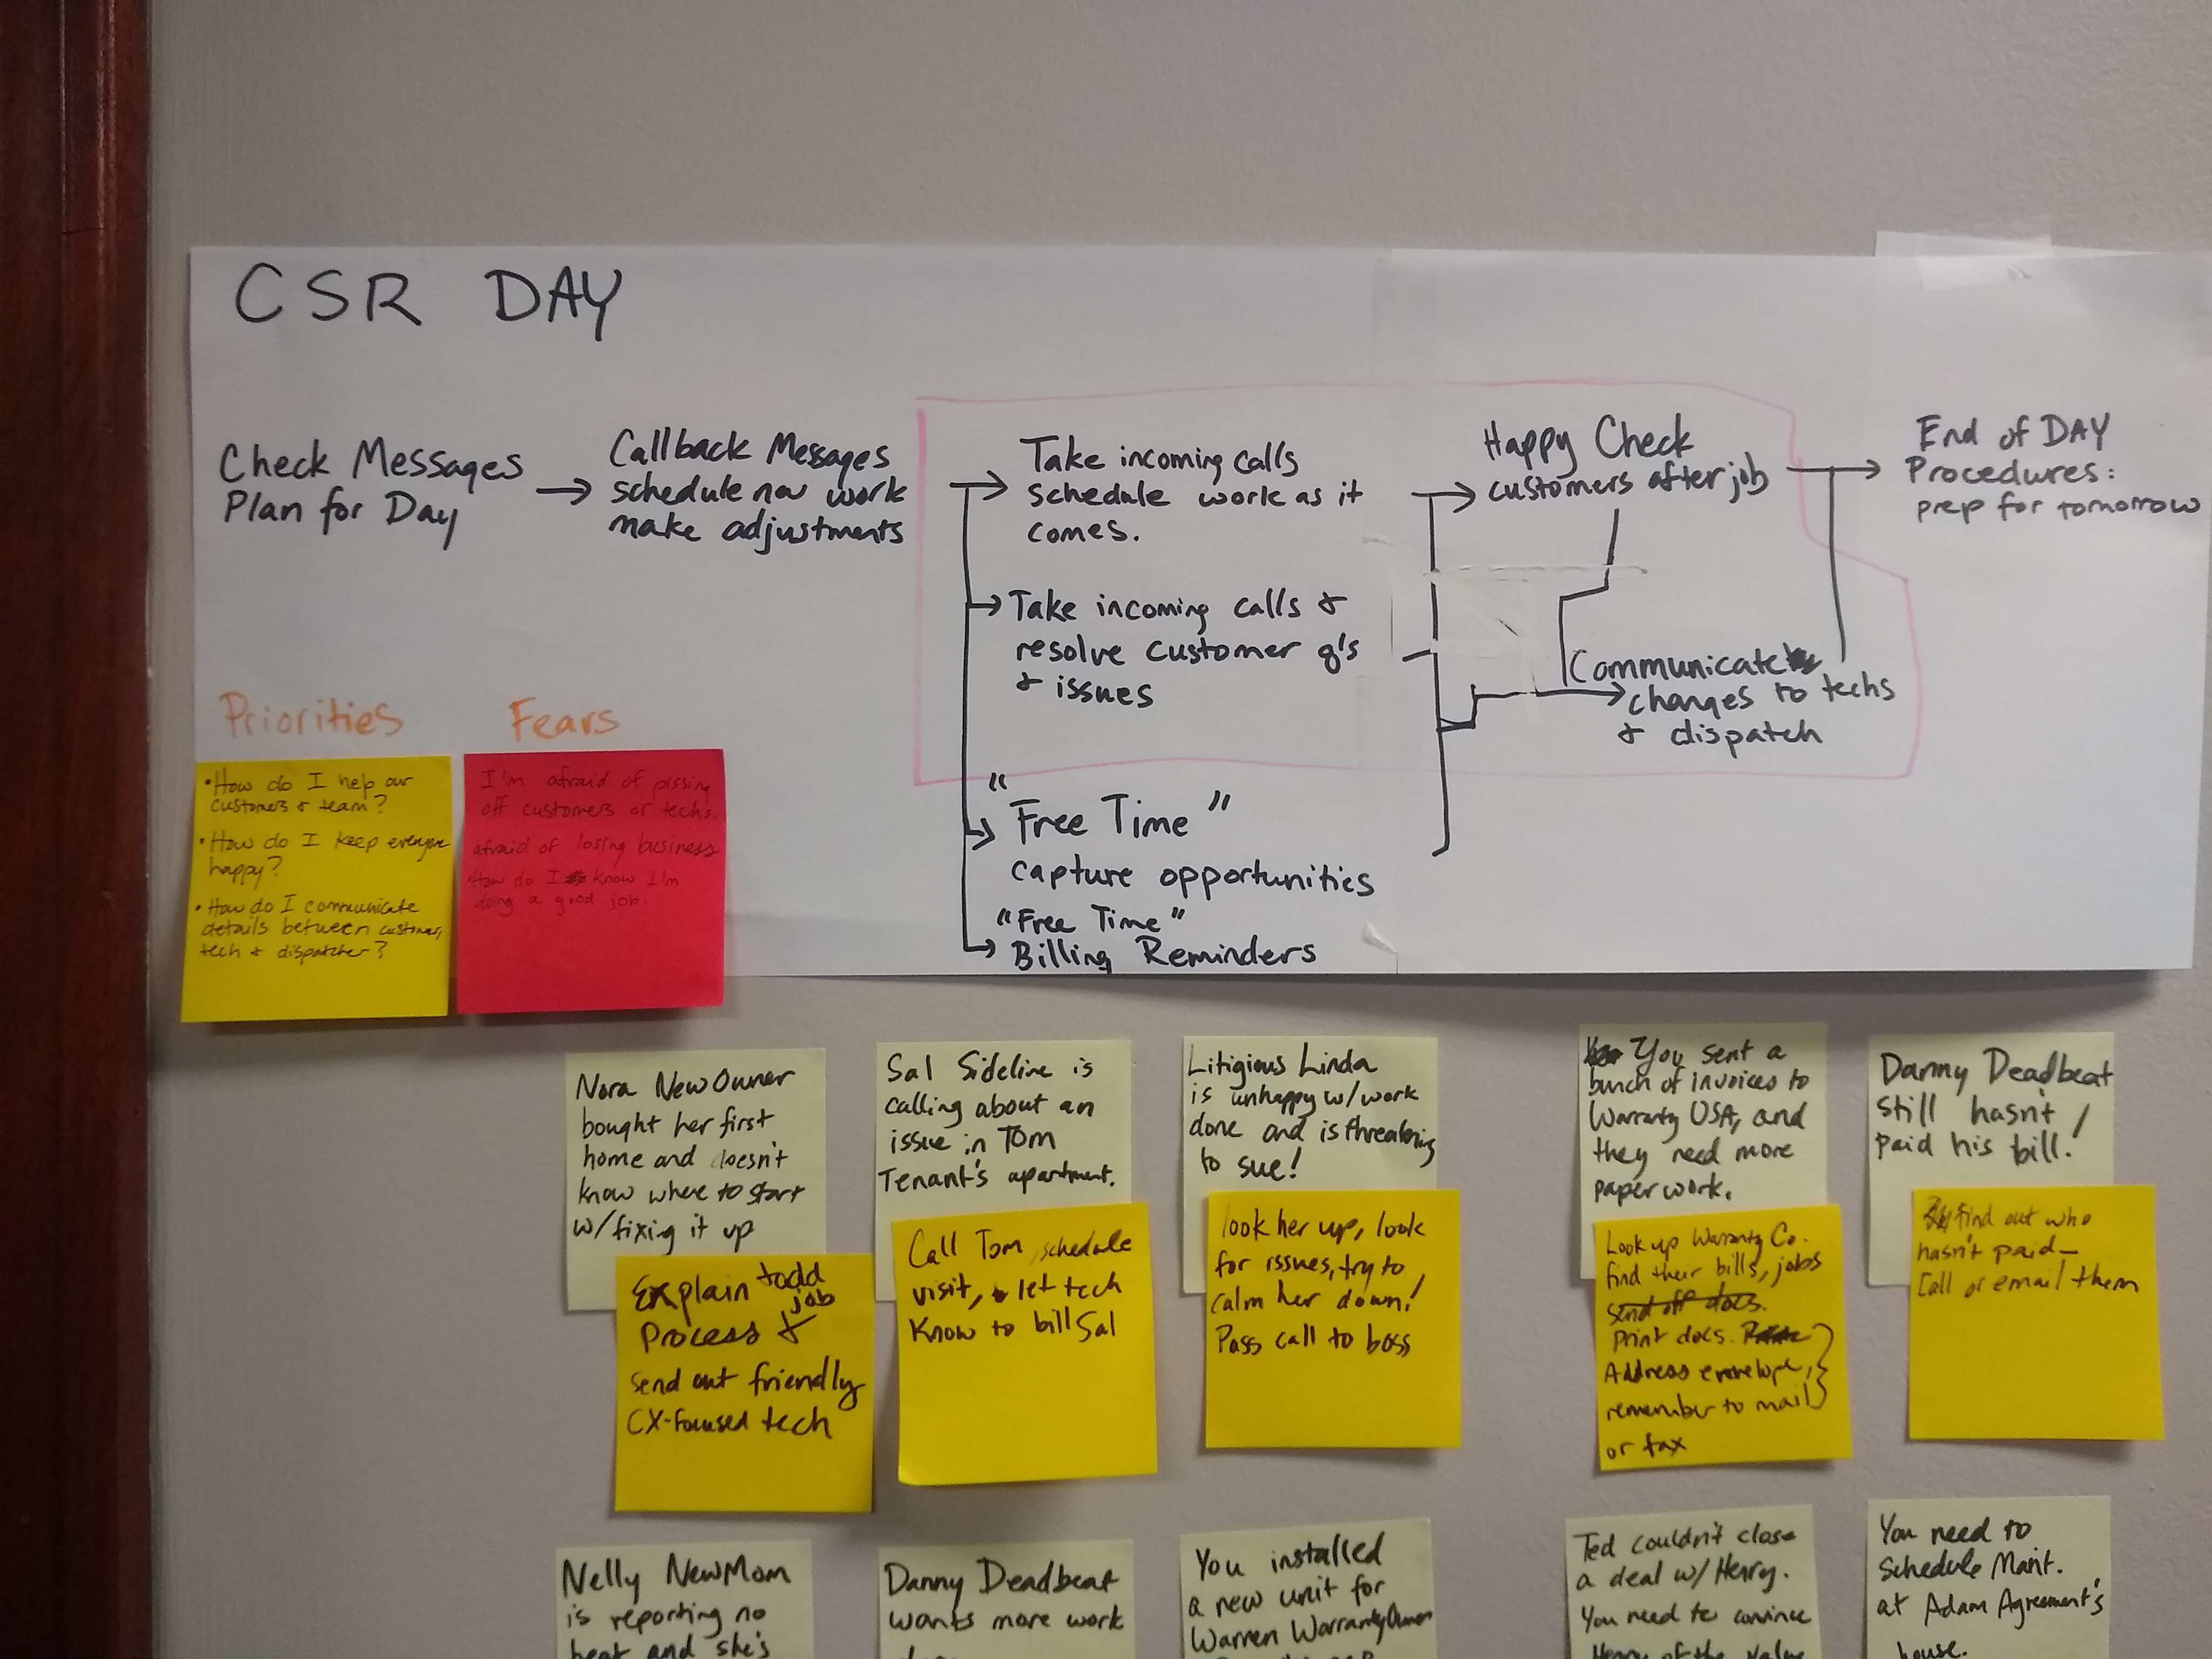 CSR DAY
Check Messages
Plan for Day
Callback Messages
schedule new work
make adjustments
Take incoming calls
schedule work as it
comes.
Take incoming calls &
resolve customer q's
& issues
"Free Time"
capture opportunities
"Free Time"
Billing Reminders
Happy Check
customers after job
Communicate
changes to techs
& dispatch
End of DAY
Procedures:
prep for tomorrow
Priorities
• How do I help our
customers & team?
• How do I keep everyone
happy?
• How do I communicate
details between customer,
tech & dispatcher?
Fears
I'm afraid of pissing
off customers or techs.
afraid of losing business
How do I know I'm
doing a good job.
Nora NewOwner
bought her first
home and doesn't
know where to start
w/fixing it up
Explain todd
job
Process &
send out friendly
CX-focused tech
Sal Sideline is
calling about an
issue in Tom
Tenant's apartment.
Call Tom, schedule
visit, let tech
Know to bill Sal
Litigious Linda
is unhappy w/work
done and is threatening
to sue!
look her up, look
for issues, try to
calm her down!
Pass call to boss
You sent a
bunch of invoices to
Warranty USA, and
they need more
paperwork.
Look up Warranty Co.
find their bills, jobs
send off docs.
print docs.
Address envelope,
remember to mail
or fax
Danny Deadbeat
still hasn't
paid his bill!
find out who
hasn't paid—
Call or email them
Nelly NewMom
is reporting no
heat and she's
Danny Deadbeat
wants more work
You installed
a new unit for
Warren WarrantyOwner
Ted couldn't close
a deal w/ Henry.
You need to convince
Henry of the value
You need to
Schedule Maint.
at Adam Agreement's
house.